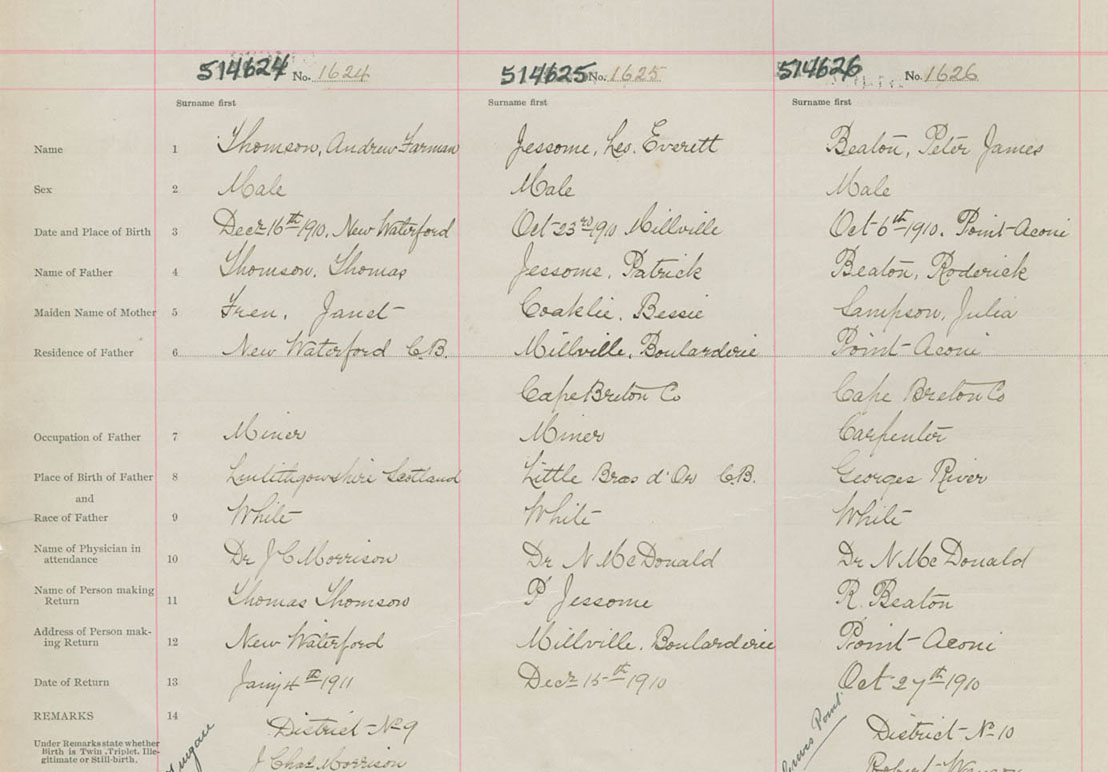 514624 No. 1624 514625 No. 1625 514626 No. 1626
Surname first Surname first Surname first
Name 1 Thomson, Andrew Farman Jessome, Leo. Everitt Beaton, Peter James
Sex 2 Male Male Male
Date and Place of Birth 3 Decr 16th 1910, New Waterford Oct 23rd 1910 Millville Oct 6th 1910. Point Aconi
Name of Father 4 Thomson, Thomas Jessome, Patrick Beaton, Roderick
Maiden Name of Mother 5 Janet Coaklie, Bessie Sampson, Julia
Residence of Father 6 New Waterford C.B. Millville, Boularderie Point Aconi
Cape Breton Co Cape Breton Co
Occupation of Father 7 Miner Miner Carpenter
Place of Birth of Father 8 Linlithgowshire Scotland Little Bras d'Or C.B. Georges River
and
Race of Father 9 White White White
Name of Physician in
attendance 10 Dr J C Morrison Dr N McDonald Dr N McDonald
Name of Person making
Return 11 Thomas Thomson P Jessome R. Beaton
Address of Person mak-
ing Return 12 New Waterford Millville, Boularderie Point Aconi
Date of Return 13 Jany 4th 1911 Decr 15th 1910 Oct 27th 1910
REMARKS 14 District No 9 District No 10
Under Remarks state whether
Birth is Twin, Triplet, Ille-
gitimate or Still-birth. J Chas Morrison Robert
Point